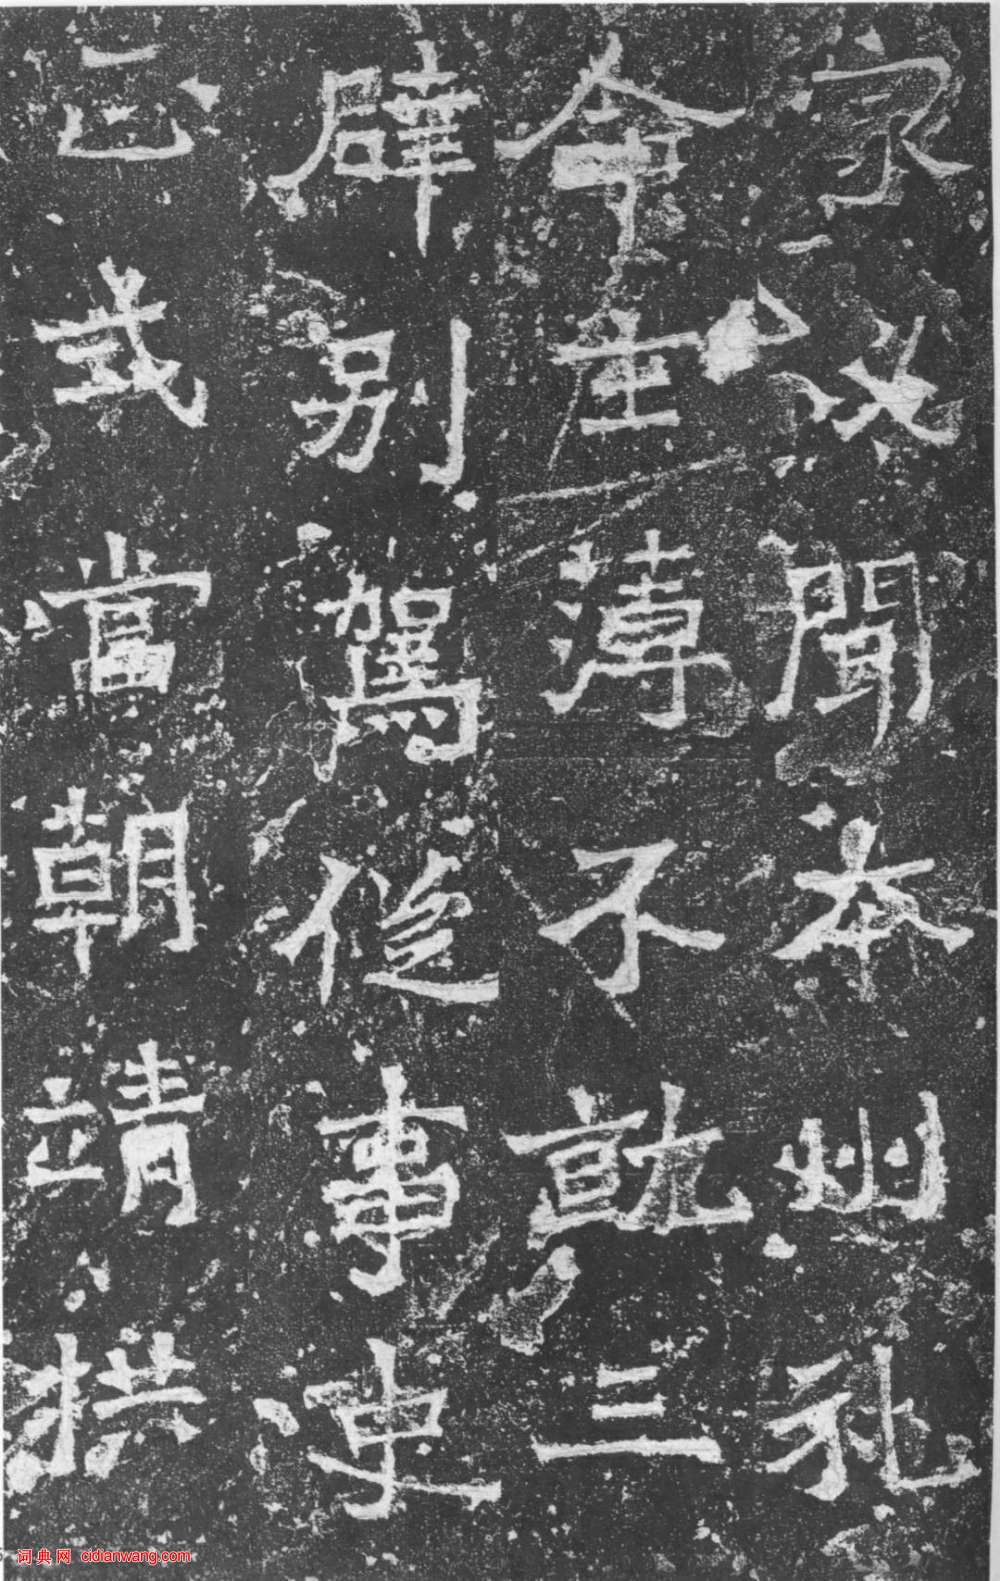 家必聞本州礼
命主薄不就三
辟别駕從事史
正式當朝靖拱
词典网 cidianwang.com